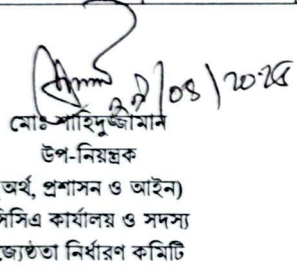 /০৪/২০২৫
মোঃ শাহিদুজ্জামান
উপ-নিয়ন্ত্রক
অর্থ, প্রশাসন ও আইন)
সিসিএ কার্যালয় ও সদস্য
জ্যেষ্ঠতা নির্ধারণ কমিটি